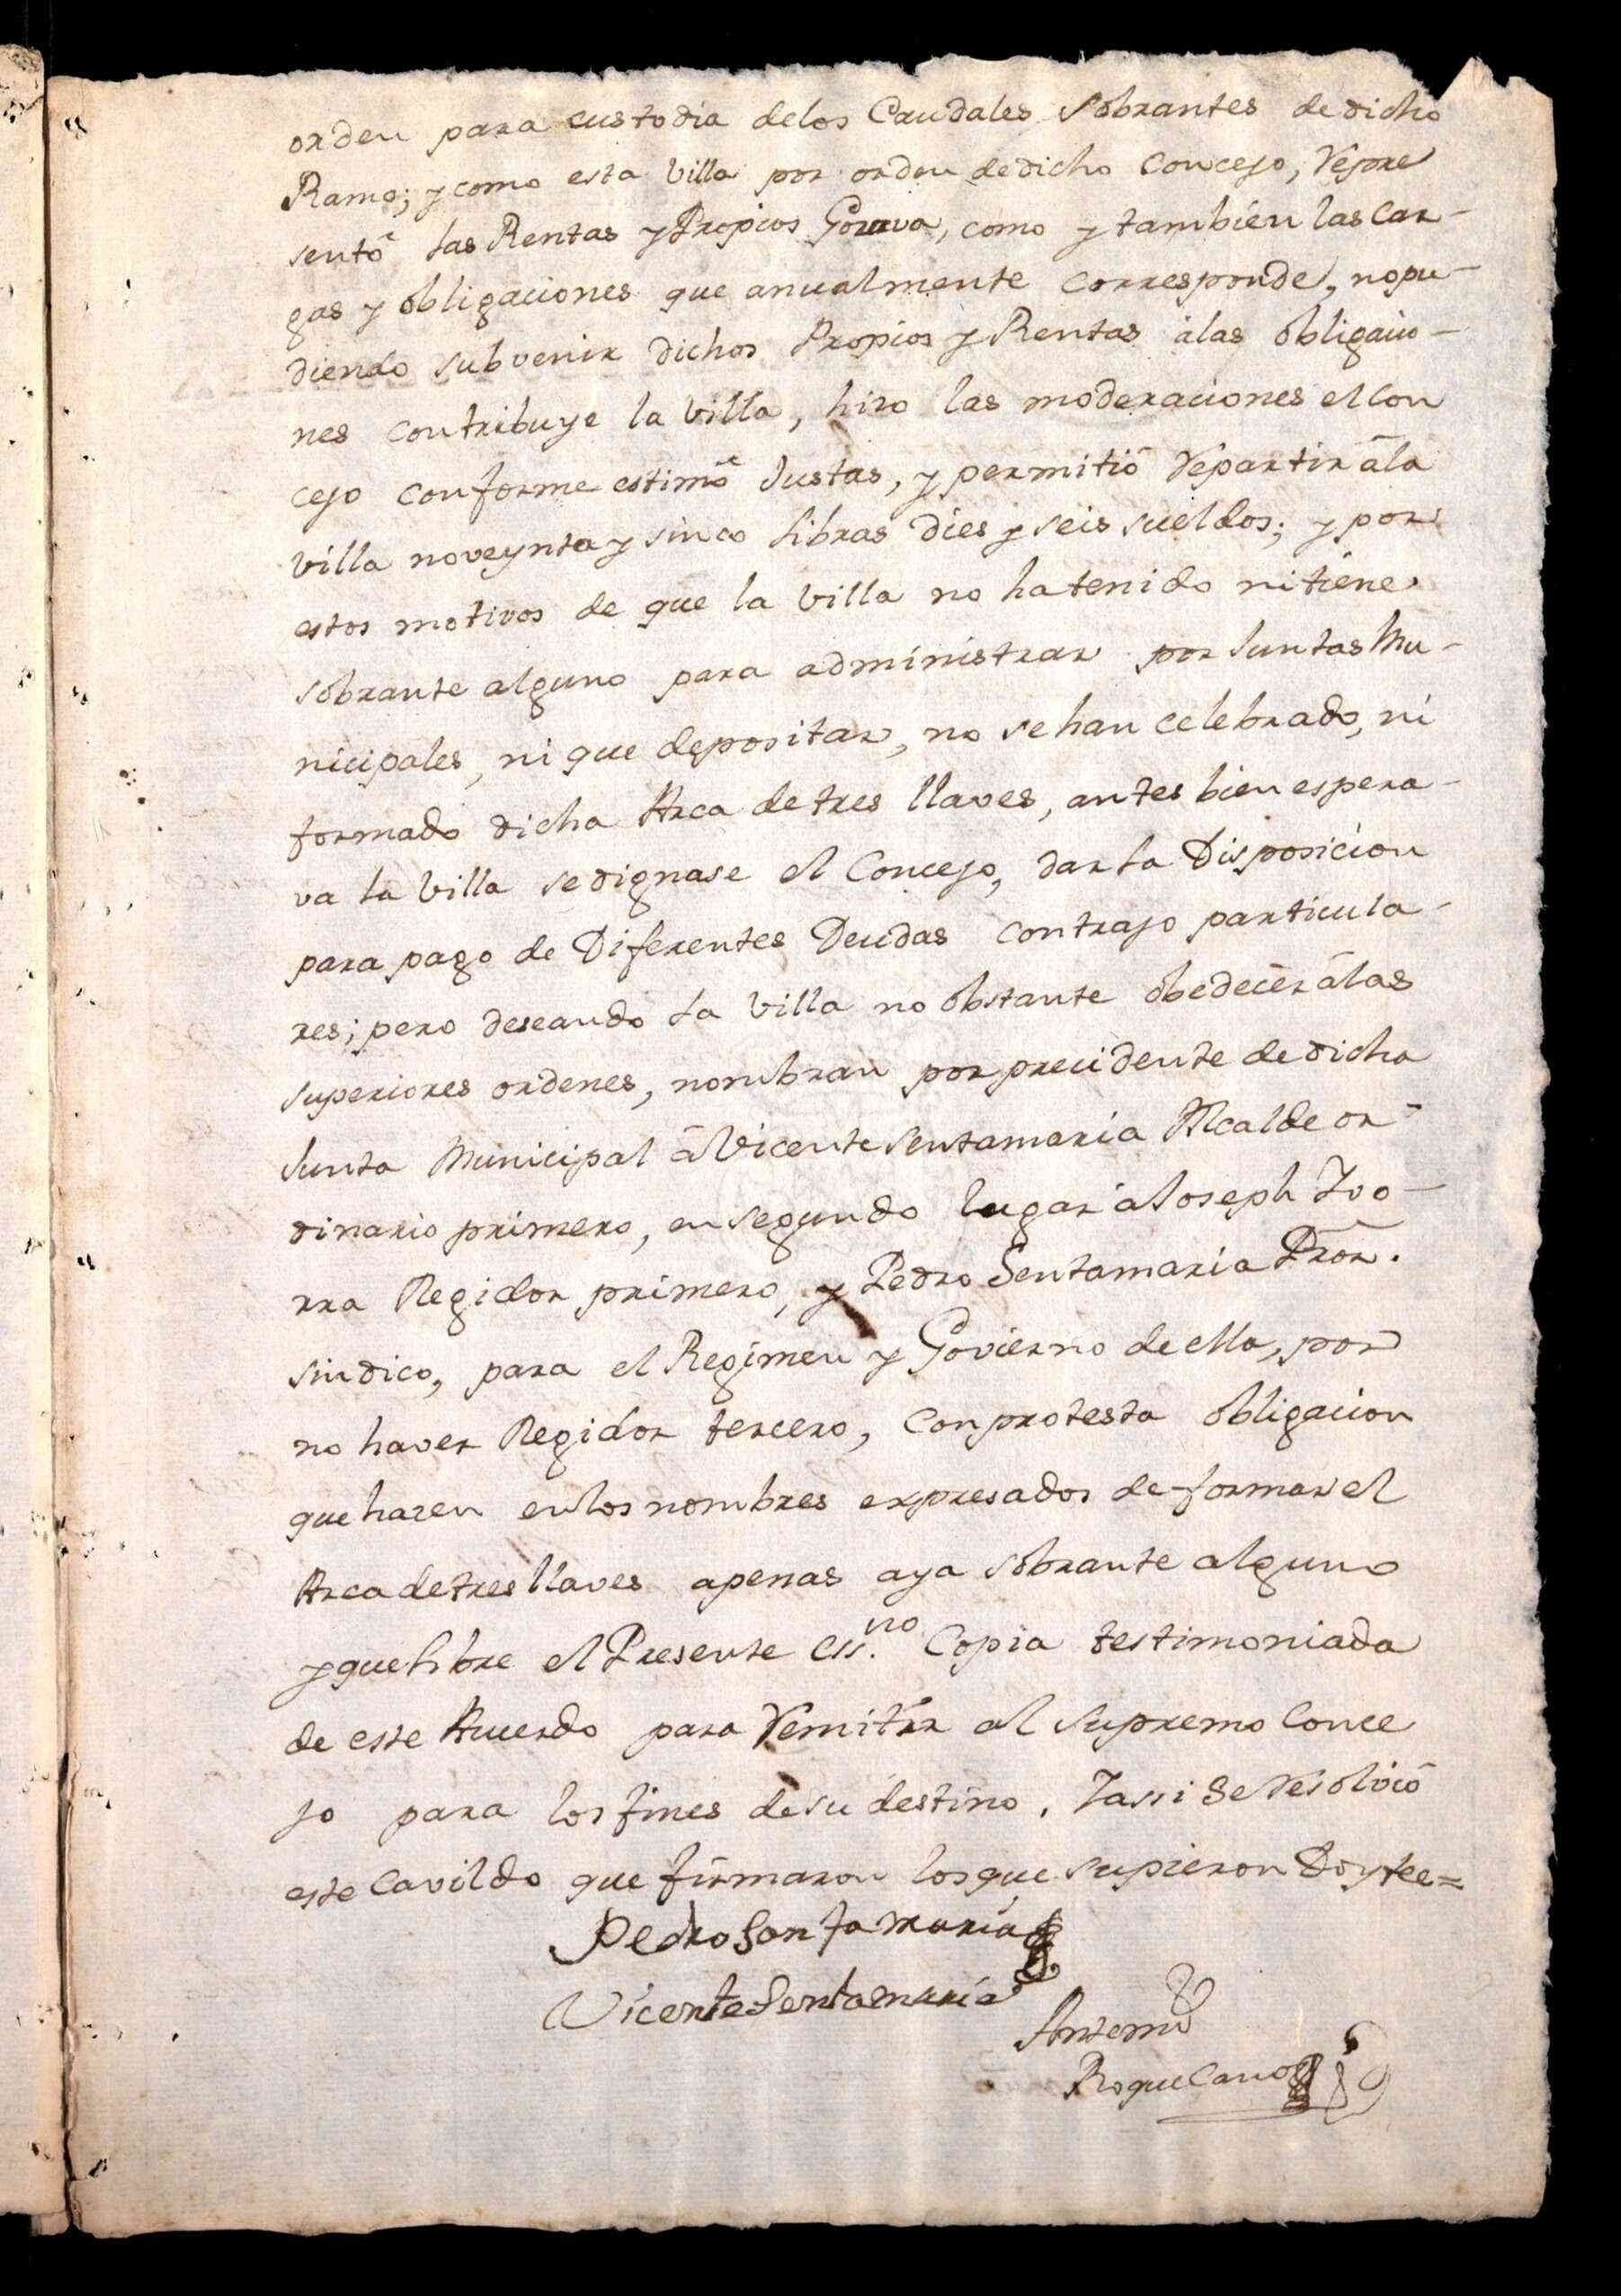 orden para custodia delos Caudales sobrantes de dicho
Ramo; y como esta Villa por orden de dicho Concejo, Repre
sentó las Rentas y Propios Gozava, como y tambien las Car-
gas y obligaciones que anualmente corresponde, nopu-
diendo subvenir dichos Propios y Rentas álas obligacio-
nes contribuye la Villa, hizo las moderaciones el Con
cejo conforme estimó Justas, y permitió Repartir ála
Villa noveynta y sinco Libras dies y seis sueldos; y por
estos motivos de que la Villa no hatenido nitiene
sobrante alguno para administrar por Juntas Mu-
nicipales, ni que depositar, no se han celebrado, ni
formado dicha Arca de tres llaves, antes bien espera-
va la Villa sedignase el Concejo, dar la Disposicion
para pago de Diferentes Deudas contrajo particula-
res; pero deseando la Villa no obstante obedecer álas
superiores ordenes, nombran por precidente de dicha
Junta Municipal á Vicente Sentamaria Alcalde or-
dinario primero, en segundo lugar a Joseph Ivo-
rra Regidor primero, y Pedro Sentamaria Pror.
sindico, para el Regimen y Govierno de ella, por
no haver Regidor tercero, con protesta obligacion
que hazen enlos nombres expresados de formar el
Arca de tres llaves apenas aya sobrante alguno
y que libre el Presente Ess.no Copia testimoniada
de este Acuerdo para Remitir al Supremo Conce
jo para los fines de su destino. Yassi se Resolvió
este Cavildo que firmaron los que supieron Doyfee=
Pedro Santamaria
Vicente Sentamaria
Antemi
Roque Cano